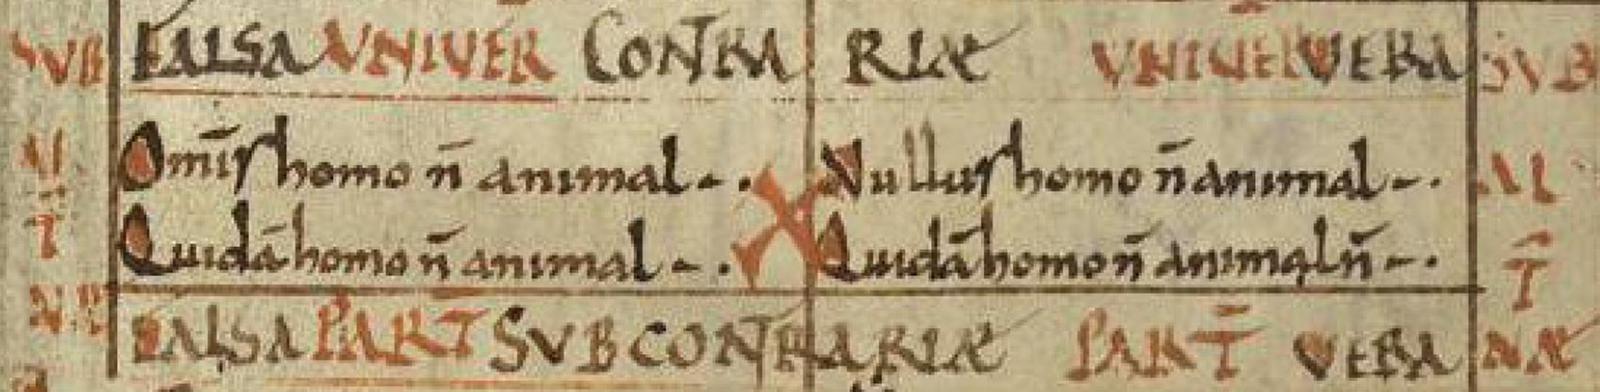 SVB FALSA VNIVER CONTRA RIÆ VNIVER VERA SVB
Om̄is homo n̄ animal -. Nullus homo n̄ animal -. AL
Quidā homo n̄ animal -. Quidā homo n̄ animal n̄ -. T̄
FALSA PART̄ SVBCONTRARIÆ PART̄ VERA NÆ